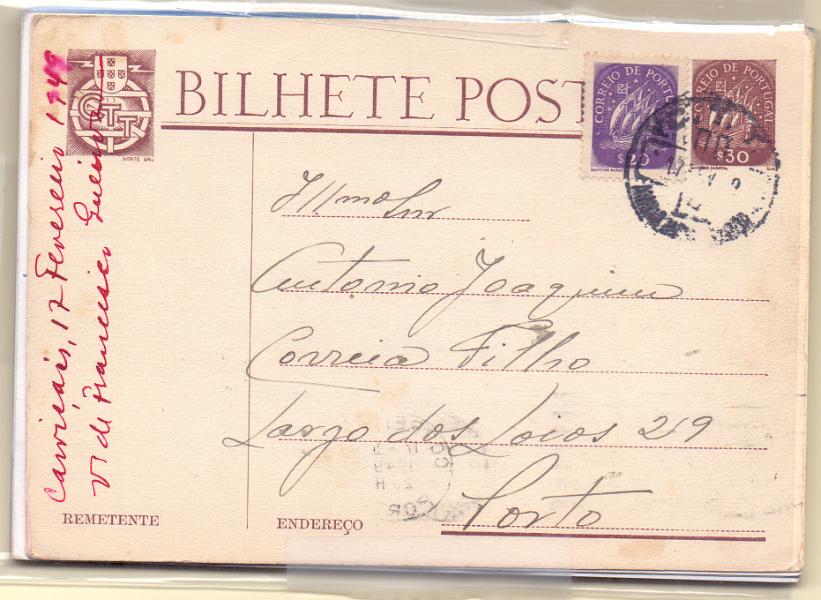 BILHETE POST
CORREIO DE PORT
$20
CORREIO DE PORTUGAL
$30
CTT
NORTE GRV.
Illmo Snr
Antonio Joaquim
Correia Filho
Largo dos Loios 29
Porto
Carviçais, 17 Fevereiro 1949
Vi de Francisco
REMETENTE
ENDEREÇO